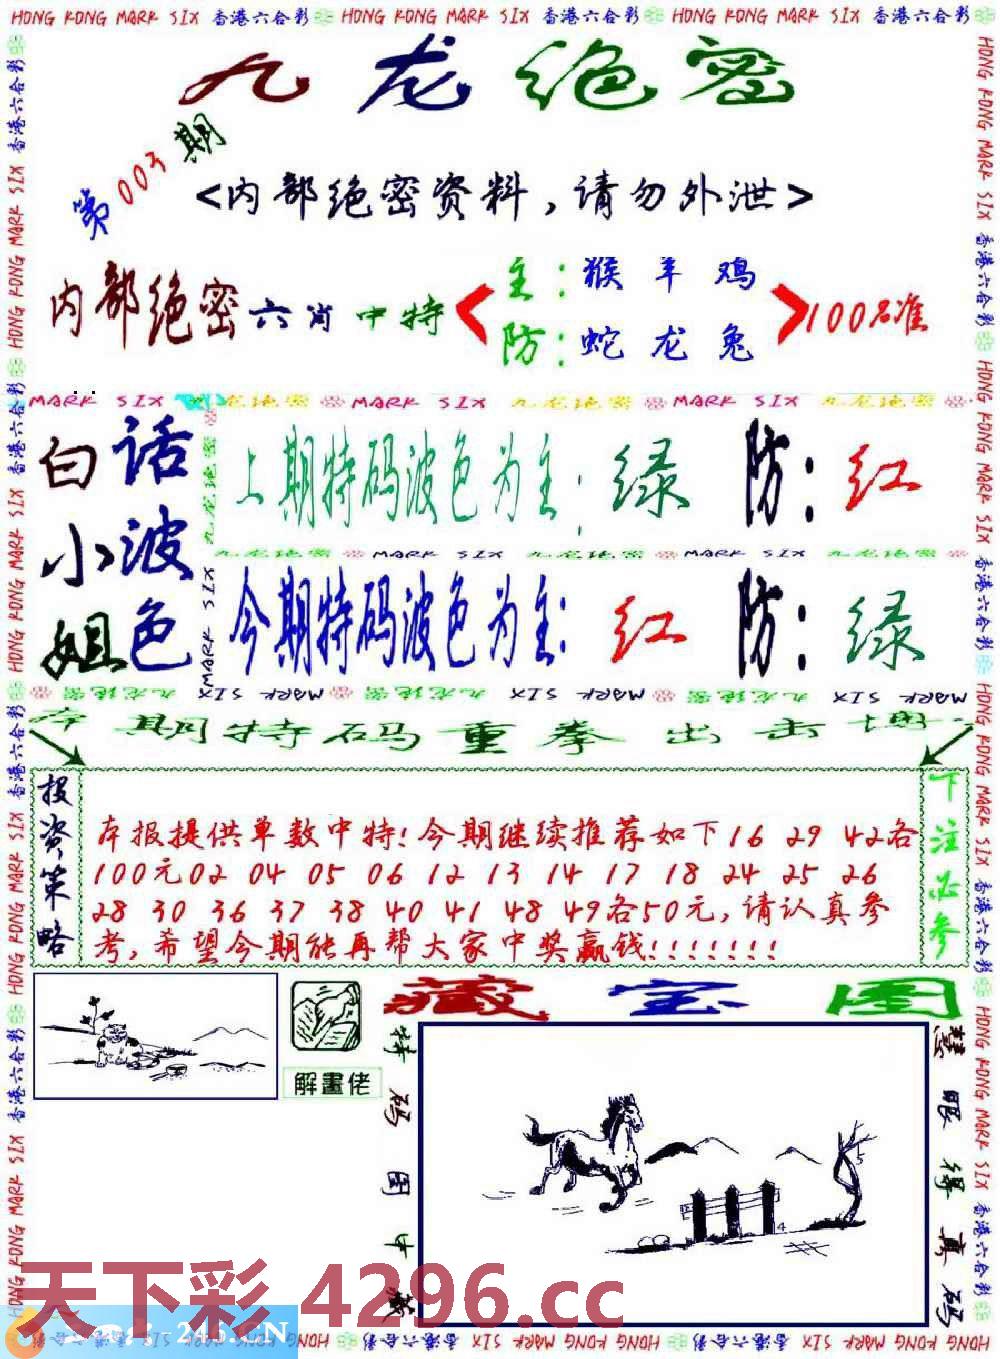 HONG KONG MARK SIX 香港六合彩 HONG KONG MARK SIX 香港六合彩 HONG KONG MARK SIX 香港六合彩
九龙绝密
第003期
<内部绝密资料,请勿外泄>
内部绝密六肖中特
主:猴羊鸡
防:蛇龙兔
100%准
MARK SIX 九龙绝密 MARK SIX 九龙绝密 MARK SIX 九龙绝密
白小姐
话波色
上期特码波色为主:绿 防:红
九龙绝密 MARK SIX 九龙绝密 MARK SIX 九龙绝密
今期特码波色为主:红 防:绿
本期特码重拳出击
投资策略
本报提供单数中特!今期继续推荐如下16 29 42各
100元02 04 05 06 12 13 14 17 18 24 25 26
28 30 36 37 38 40 41 48 49各50元,请认真参
考,希望今期能再帮大家中奖赢钱!!!!!!!
下注必参
藏宝图
解畫佬
特码图中藏
慧眼得真码
天下彩 4296.cc
246.CN